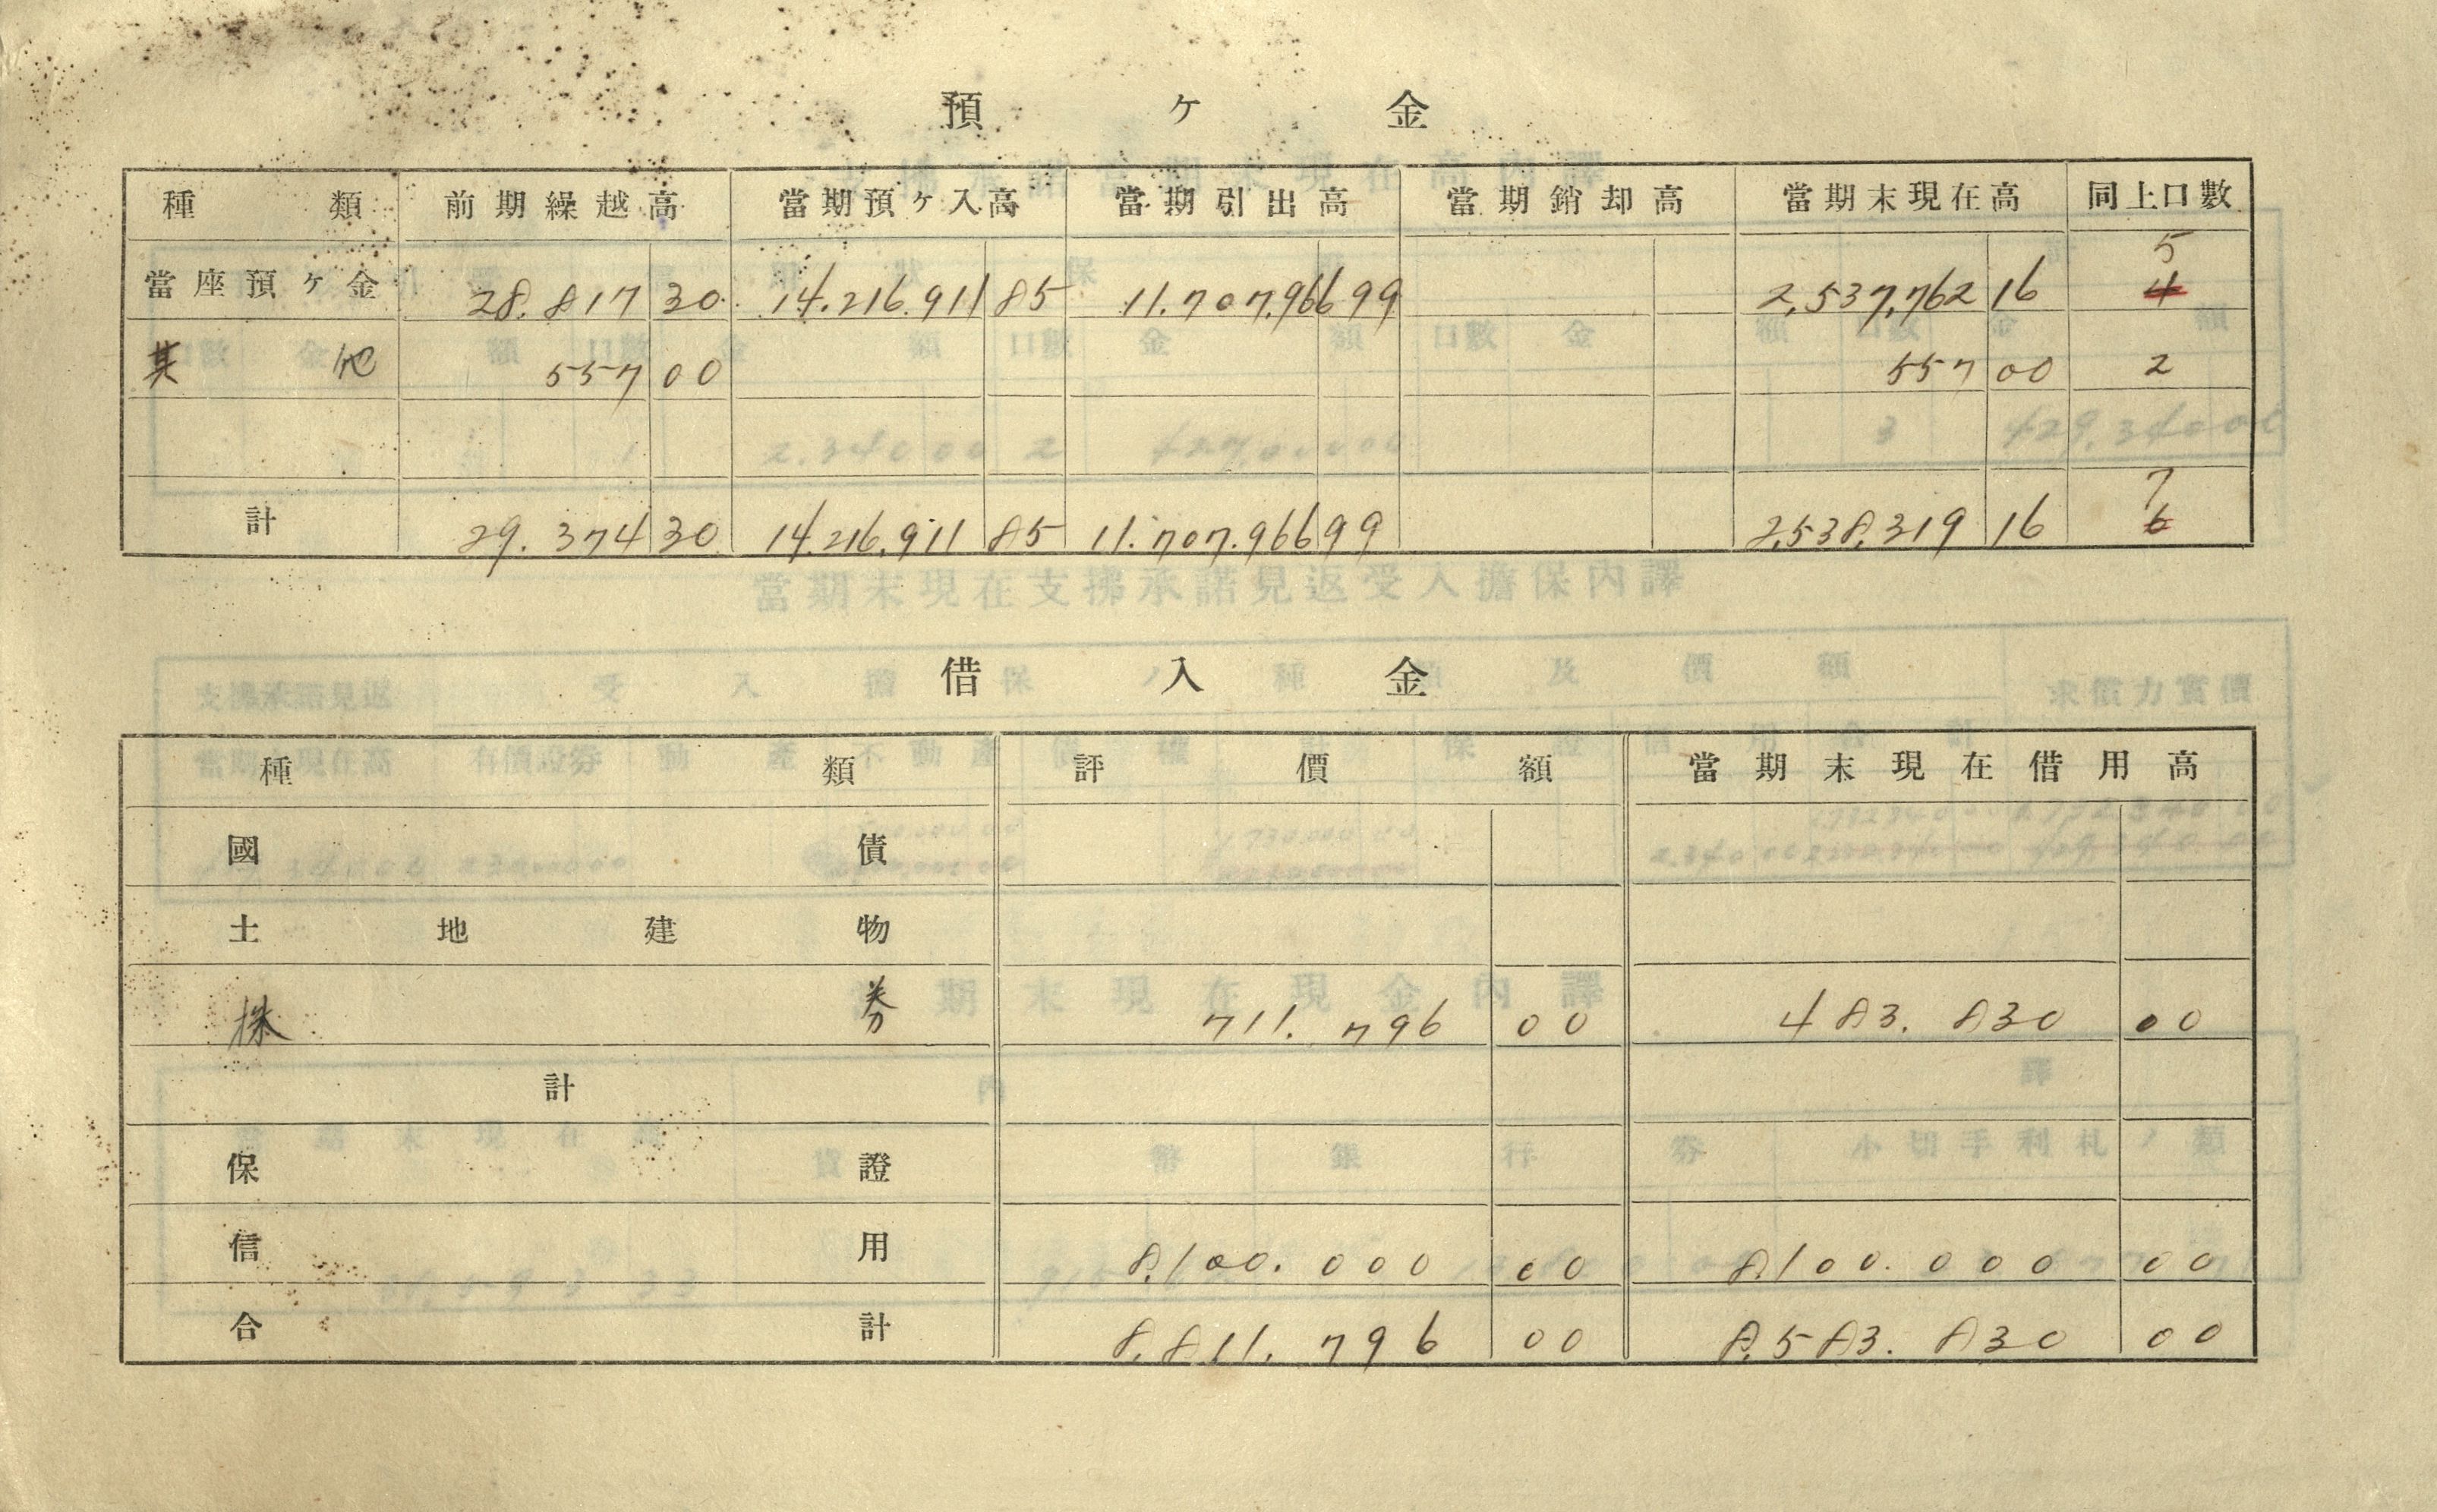 預ヶ金
種類 前期繰越高 當期預ヶ入高 當期引出高 當期銷却高 當期末現在高 同上口數
5
當座預ヶ金 28.817 30 14.216.911 85 11.707.966 99 2,537,762 16 4
其他 557 00 557 00 2
7
計 29.374 30 14.216.911 85 11.707.966 99 2,538,319 16 6
借入金
種類 評價額 當期末現在借用高
國債
土地建物
株券 711.796 00 483.830 00
計
保證
信用 8.100.000 00 8.100.000 00
合計 8.811.796 00 8.583.830 00